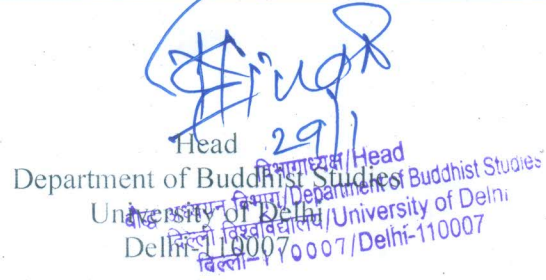 Singh
29/1
Head
Department of Buddhist Studies
University of Delhi
Delhi-110007
विभागाध्यक्ष/Head
बौद्ध अध्ययन विभाग/Department of Buddhist Studies
दिल्ली विश्वविद्यालय/University of Delhi
दिल्ली-110007/Delhi-110007